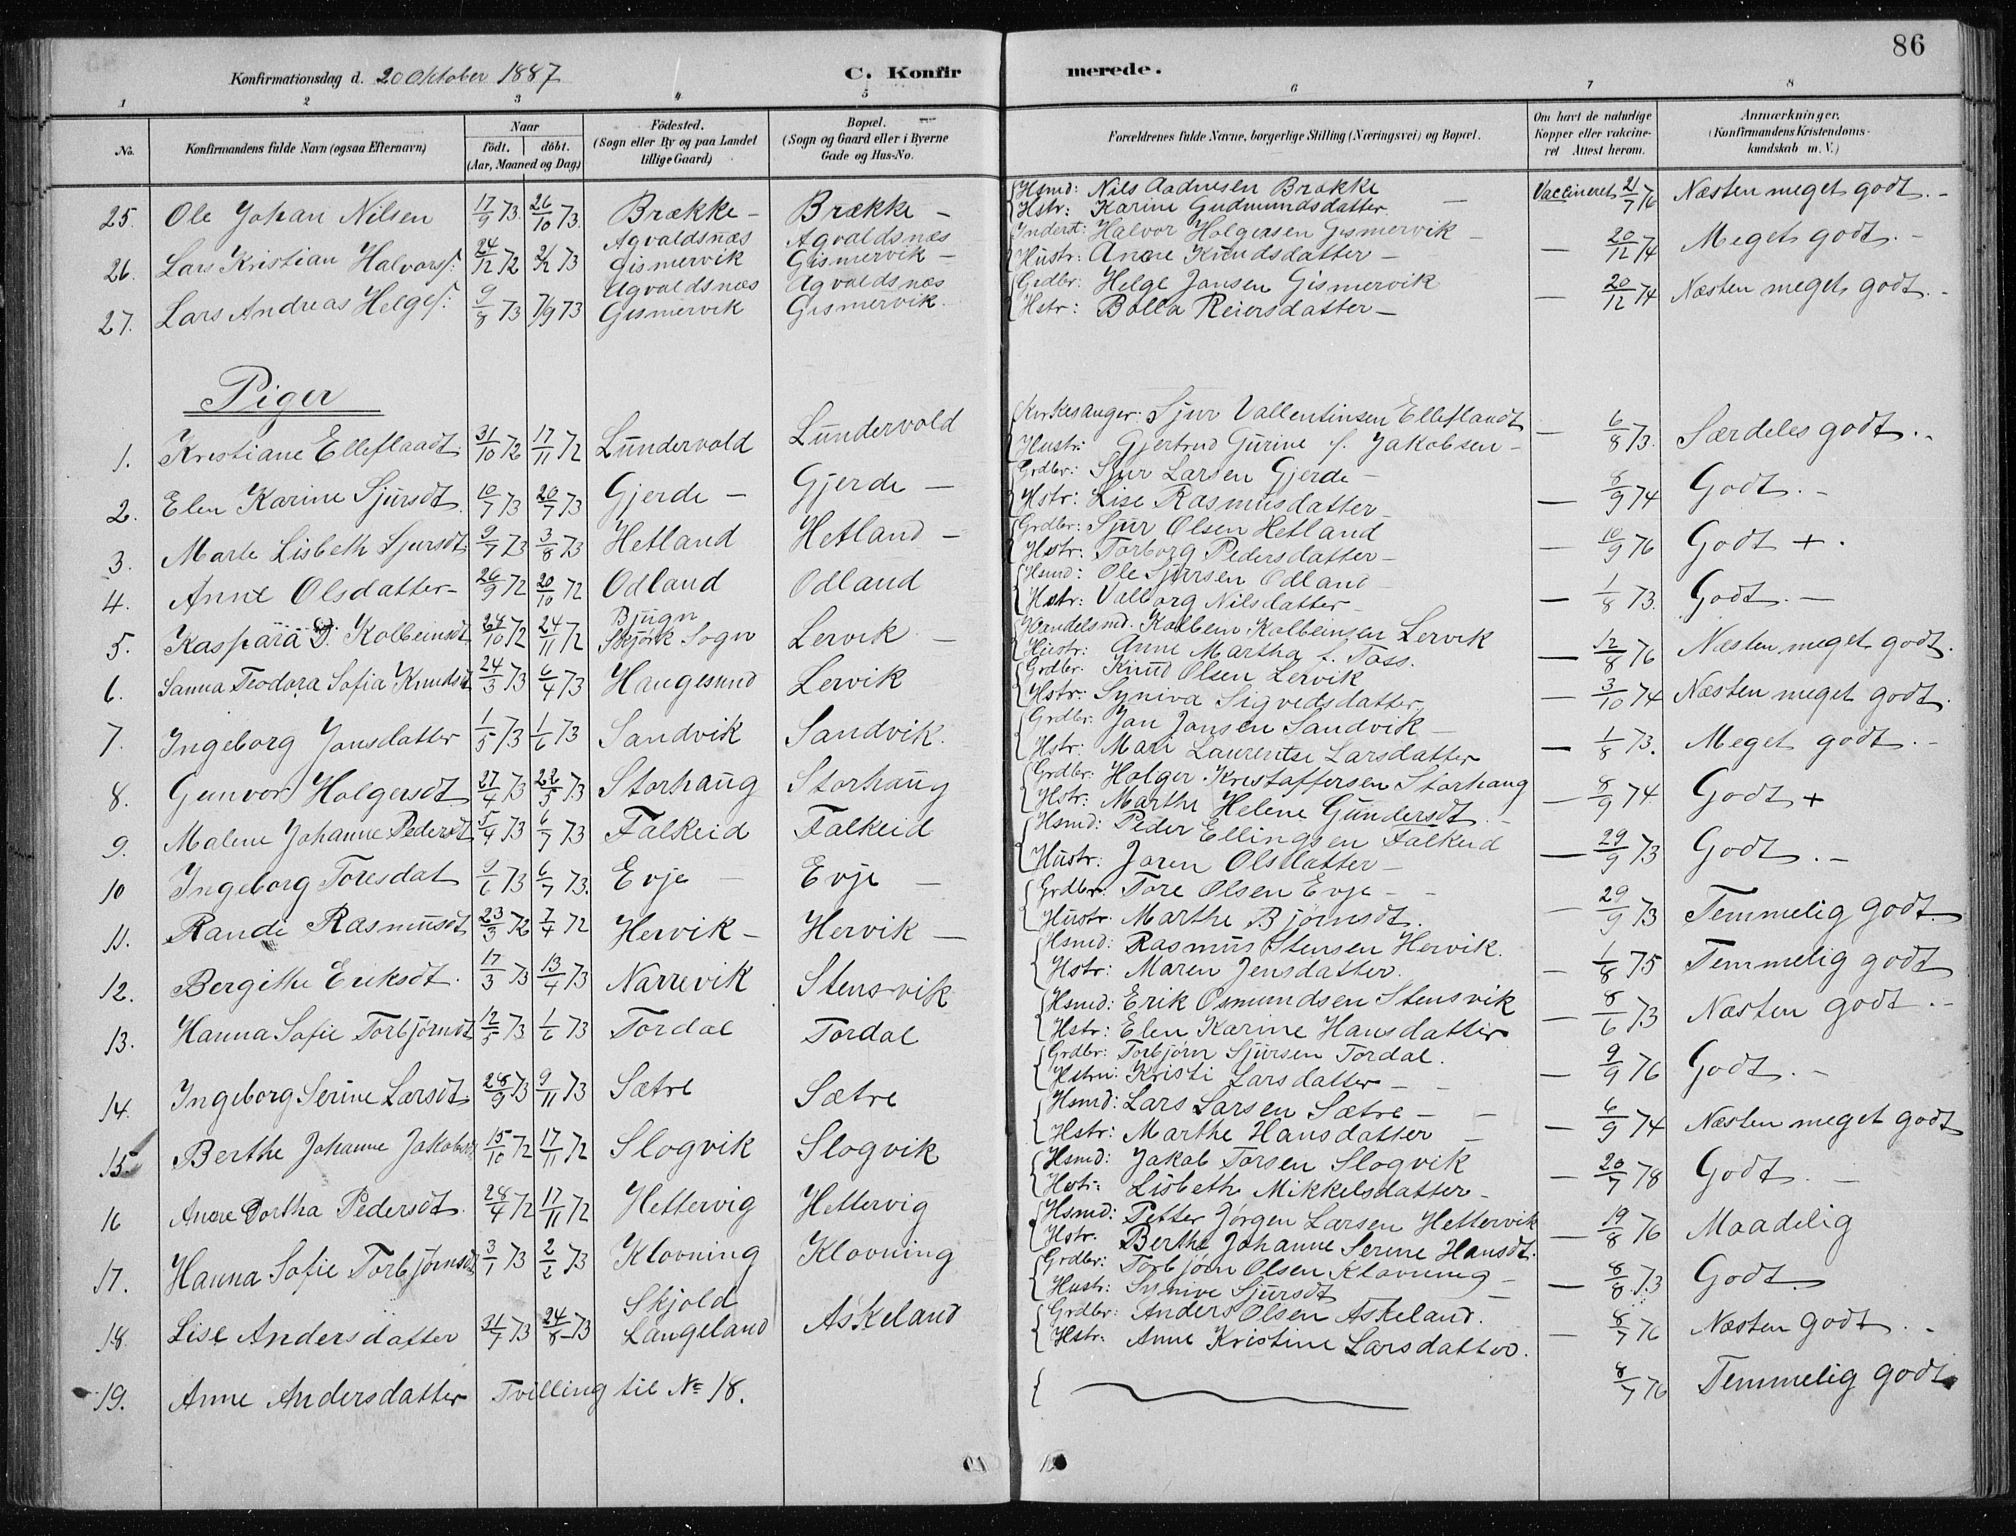 86
Konfirmationsdag d. 20 Oktober 1887 C. Konfirmerede.
1 2 3 4 5 6 7 8
No. Konfirmandens fulde Navn (ogsaa Efternavn) Naar födt. döbt. (Aar, Maaned og Dag) Födested. (Sogn eller By og paa Landet tillige Gaard) Bopæl. (Sogn og Gaard eller i Byerne Gade og Hus-No. Forældrenes fulde Navne, borgerlige Stilling (Næringsvei) og Bopæl. Om havt de naturlige Kopper eller vakcineret Attest herom. Anmærkninger. (Konfirmandens Kristendomskundskab m. V.)
25. Ole Johan Nilsen 17/9 73. 26/10 73. Brække – Brække – Hsmd: Nils Aadnesen Brække Hstr: Karine Gudmundsdatter – Vaccineret 21/7 76 Næsten meget godt. –
26. Lars Kristian Halvors: 24/12 72 2/2 73 Agvaldsnæs Gismervik Agvaldsnæs Gismervik – Inderst: Halvor Holgersen Gismervik – Hustr: Anne Knudsdatter – – 20/12 74 Meget godt. –
27. Lars Andreas Helges: 9/8 73 7/9 73 Agvaldsnæs Gismervik Agvaldsnæs Gismervik. Grdbr: Helge Jansen Gismervik Hstr: Bolla Reiersdatter – – 20/12 74 Næsten meget godt. –
Piger
1. Kristiane Elleflaadt 31/10 72 17/11 72 Lundervold Lundervold Kirkesanger: Sjur Vallentinsen Elleflandt Hustr: Gjertrud Gurine f. Jakobsen – – 6/8 73. Særdeles godt. –
2. Elen Karine Sjursdt. 10/7 73 20/7 73 Gjerde – Gjerde – Grdbr: Sjur Larsen Gjerde – Hstr: Lise Rasmusdatter – – 8/9 74 Godt. –
3. Marte Lisbeth Sjursdt 9/7 73 3/8 73 Hetland Hetland – Grdbr: Sjur Olsen Hetland Hstr: Torborg Pedersdatter – – 10/9 76 Godt + .
4. Anne Olsdatter – 26/9 72 20/10 72 Odland Odland Hsmd: Ole Sjursen Odland Hstr: Valborg Nilsdatter – – 1/8 73. Godt. –
5. Kaspara D. Kolbeinsdt 24/10 72 24/11 72 Bjugn Sogn Lervik – Handelsmd. Kolbein Kolbeinsen Lervik Hustr: Anne Martha f. Tass. – 12/8 76 Næsten meget godt.
6. Sanna Teodora Sofia Knudsdt 24/3 73 6/4 73 Haugesund Lervik Grdbr. Knud Olsen Lervik Hstr: Syniva Sigvedsdatter – 3/10 74 Næsten meget godt.
7. Ingeborg Jansdatter 1/5 73 1/6 73 Sandvik Sandvik. Grdbr: Jan Jansen Sandvik Hstr: Mari Laurentse Larsdatter – 1/8 73. Meget godt. –
8. Gunvor Holgersdt 27/4 73 22/5 73 Storhaug Storhaug Grdbr: Holger Kristoffersen Storhaug Hstr: Marthe Helene Gundersdt. – – 8/9 74 Godt +
9. Malene Johanne Pedersdt 5/4 73 6/7 73 Falkeid Falkeid Hsmd: Peder Ellingsen Falkeid Hustr: Joren Olsdatter – – 29/9 73 Godt. –
10 Ingeborg Toresdat 9/6 73 6/7 73. Evje – Evje – Grdbr: Tore Olsen Evje – – Hustr. Marthe Bjørnsdt. – 29/9 73 Temmelig godt.
11. Rande Rasmusdt 23/3 72 7/4 72 Hervik – Hervik – Hsmd: Rasmus Stensen Hervik. Hstr: Maren Jensdatter. – 1/8 75 Temmelig godt
12. Bergithe Eriksdt. 17/3 73 13/4 73 Narrevik Stensvik Hsmd: Erik Osmundsen Stensvik Hstr: Elen Karine Hansdatter – 8/6 73 Næsten godt. –
13. Hanna Sofie Torbjørnsdt 12/5 73 1/6 73 Tordal Tordal Grdbr: Torbjørn Sjursen Tordal. Hstru: Kristi Larsdatter – – – 9/9 76 Godt. –
14. Ingeborg Serine Larsdt. 28/9 73 9/11 73 Sætre Sætre Hsmd: Lars Larsen Sætre – – Hstr: Marthe Hansdatter – – 6/9 74 Næsten meget godt
15. Berthe Johanne Jakobsdt 15/10 72 17/11 72 Slogvik Slogvik Hsmd: Jakob Torsen Slogvik Hstr: Lisbeth Mikkelsdatter – – 20/7 78 Godt. –
16 Anne Dortha Pedersdt. 28/4 72 17/11 72 Hettervig Hettervig Hsmd: Petter Jørgen Larsen Hettervik Hstr. Berthe Johanne Serine Hansdt. – 19/8 76 Maadelig
17. Hanna Sofie Torbjørnsdt 3/1 73 2/2 73 Klovning Klovning Grdbr: Torbjørn Olsen Klovning – Hustr: Synive Sjursdt – – 8/8 73 Godt.
18. Lise Andersdatter 21/7 73 24/8 73 Skjold Langeland Askeland Grdbr: Anders Olsen Askeland. Hstr: Anne Kristine Larsdatter. – 8/7 76 Næsten godt. –
19. Anne Andersdatter Tvilling til No 18. 8/7 76 Temmelig godt.